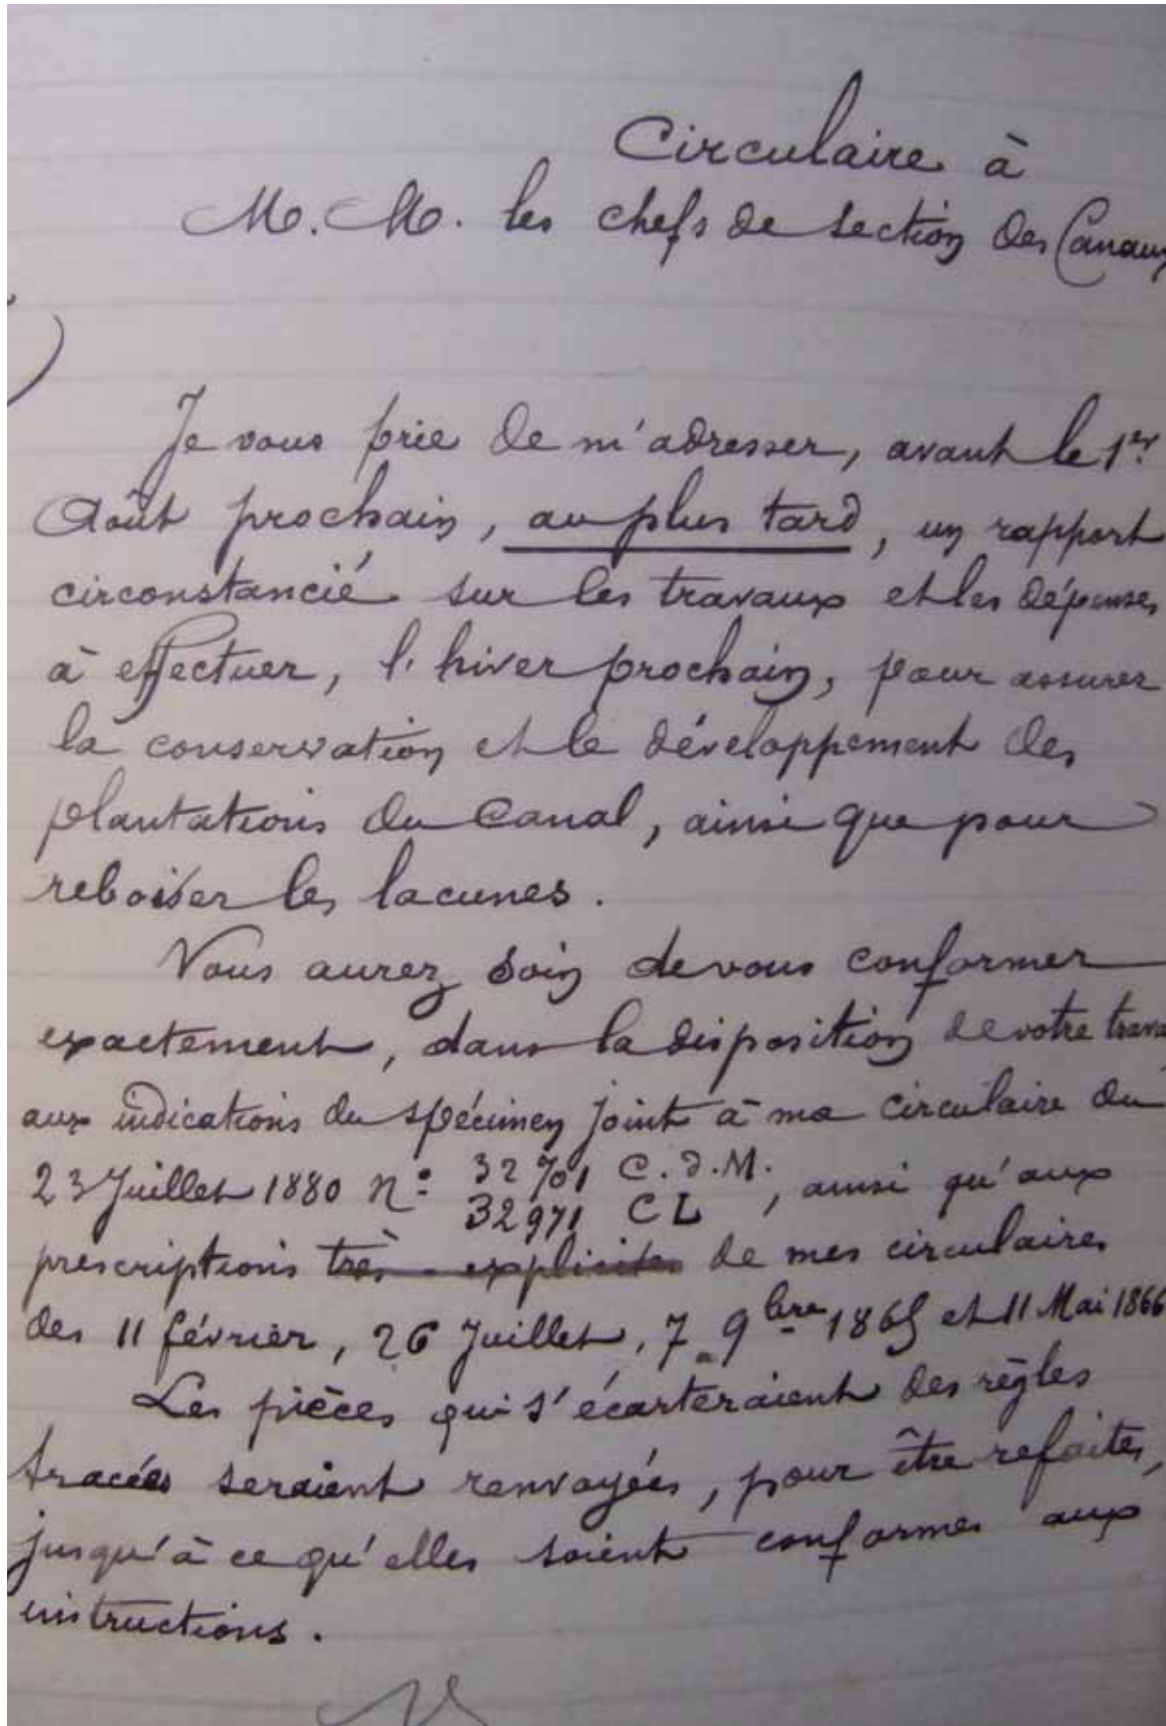 Circulaire à
M. M. les chefs de section des Canaux
Je vous prie de m'adresser, avant le 1er
Août prochain, au plus tard, un rapport
circonstancié sur les travaux et les dépenses
à effectuer, l'hiver prochain, pour assurer
la conservation et le développement des
plantations du Canal, ainsi que pour
reboiser les lacunes.
Vous aurez soin de vous conformer
exactement, dans la disposition de votre trava
aux indications du spécimen joint à ma circulaire du
23 Juillet 1880 n° 32701 C.d.M.
32971 CL , ainsi qu'aux
prescriptions très explicites de mes circulaires
des 11 février, 26 Juillet, 7 9bre 1865 et 11 Mai 1866
Les pièces qui s'écarteraient des règles
tracées seraient renvoyées, pour être refaites,
jusqu'à ce qu'elles soient conformes aux
instructions.